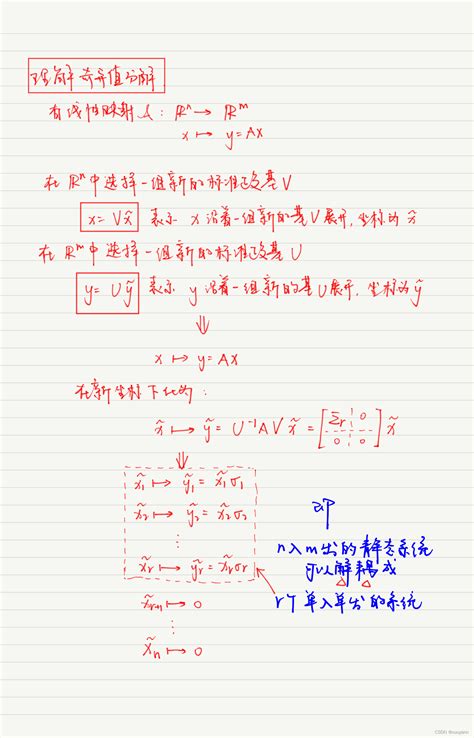 理解奇异值分解
有线性映射 A: ℝⁿ → ℝᵐ
x ↦ y=AX
在 ℝⁿ中选择一组新的标准正交基 V
x= Vx̃ 表示 x 沿着一组新的基V展开, 坐标为 x̃
在 ℝᵐ中选择一组新的标准正交基 U
y= Uỹ 表示 y 沿着一组新的基U展开, 坐标为 ỹ
⇓
x ↦ y=AX
在新坐标下化为:
x̃ ↦ ỹ = U⁻¹AVx̃ = [Σr 0; 0 0] x̃
⇓
x̃₁ ↦ ỹ₁ = x̃₁σ₁
x̃₂ ↦ ỹ₂ = x̃₂σ₂
⋮
x̃r ↦ ỹr = x̃rσr
x̃r+1 ↦ 0
⋮
x̃n ↦ 0
即
n入m出的静态系统
可以解耦成
r个单入单出的系统
CSDN